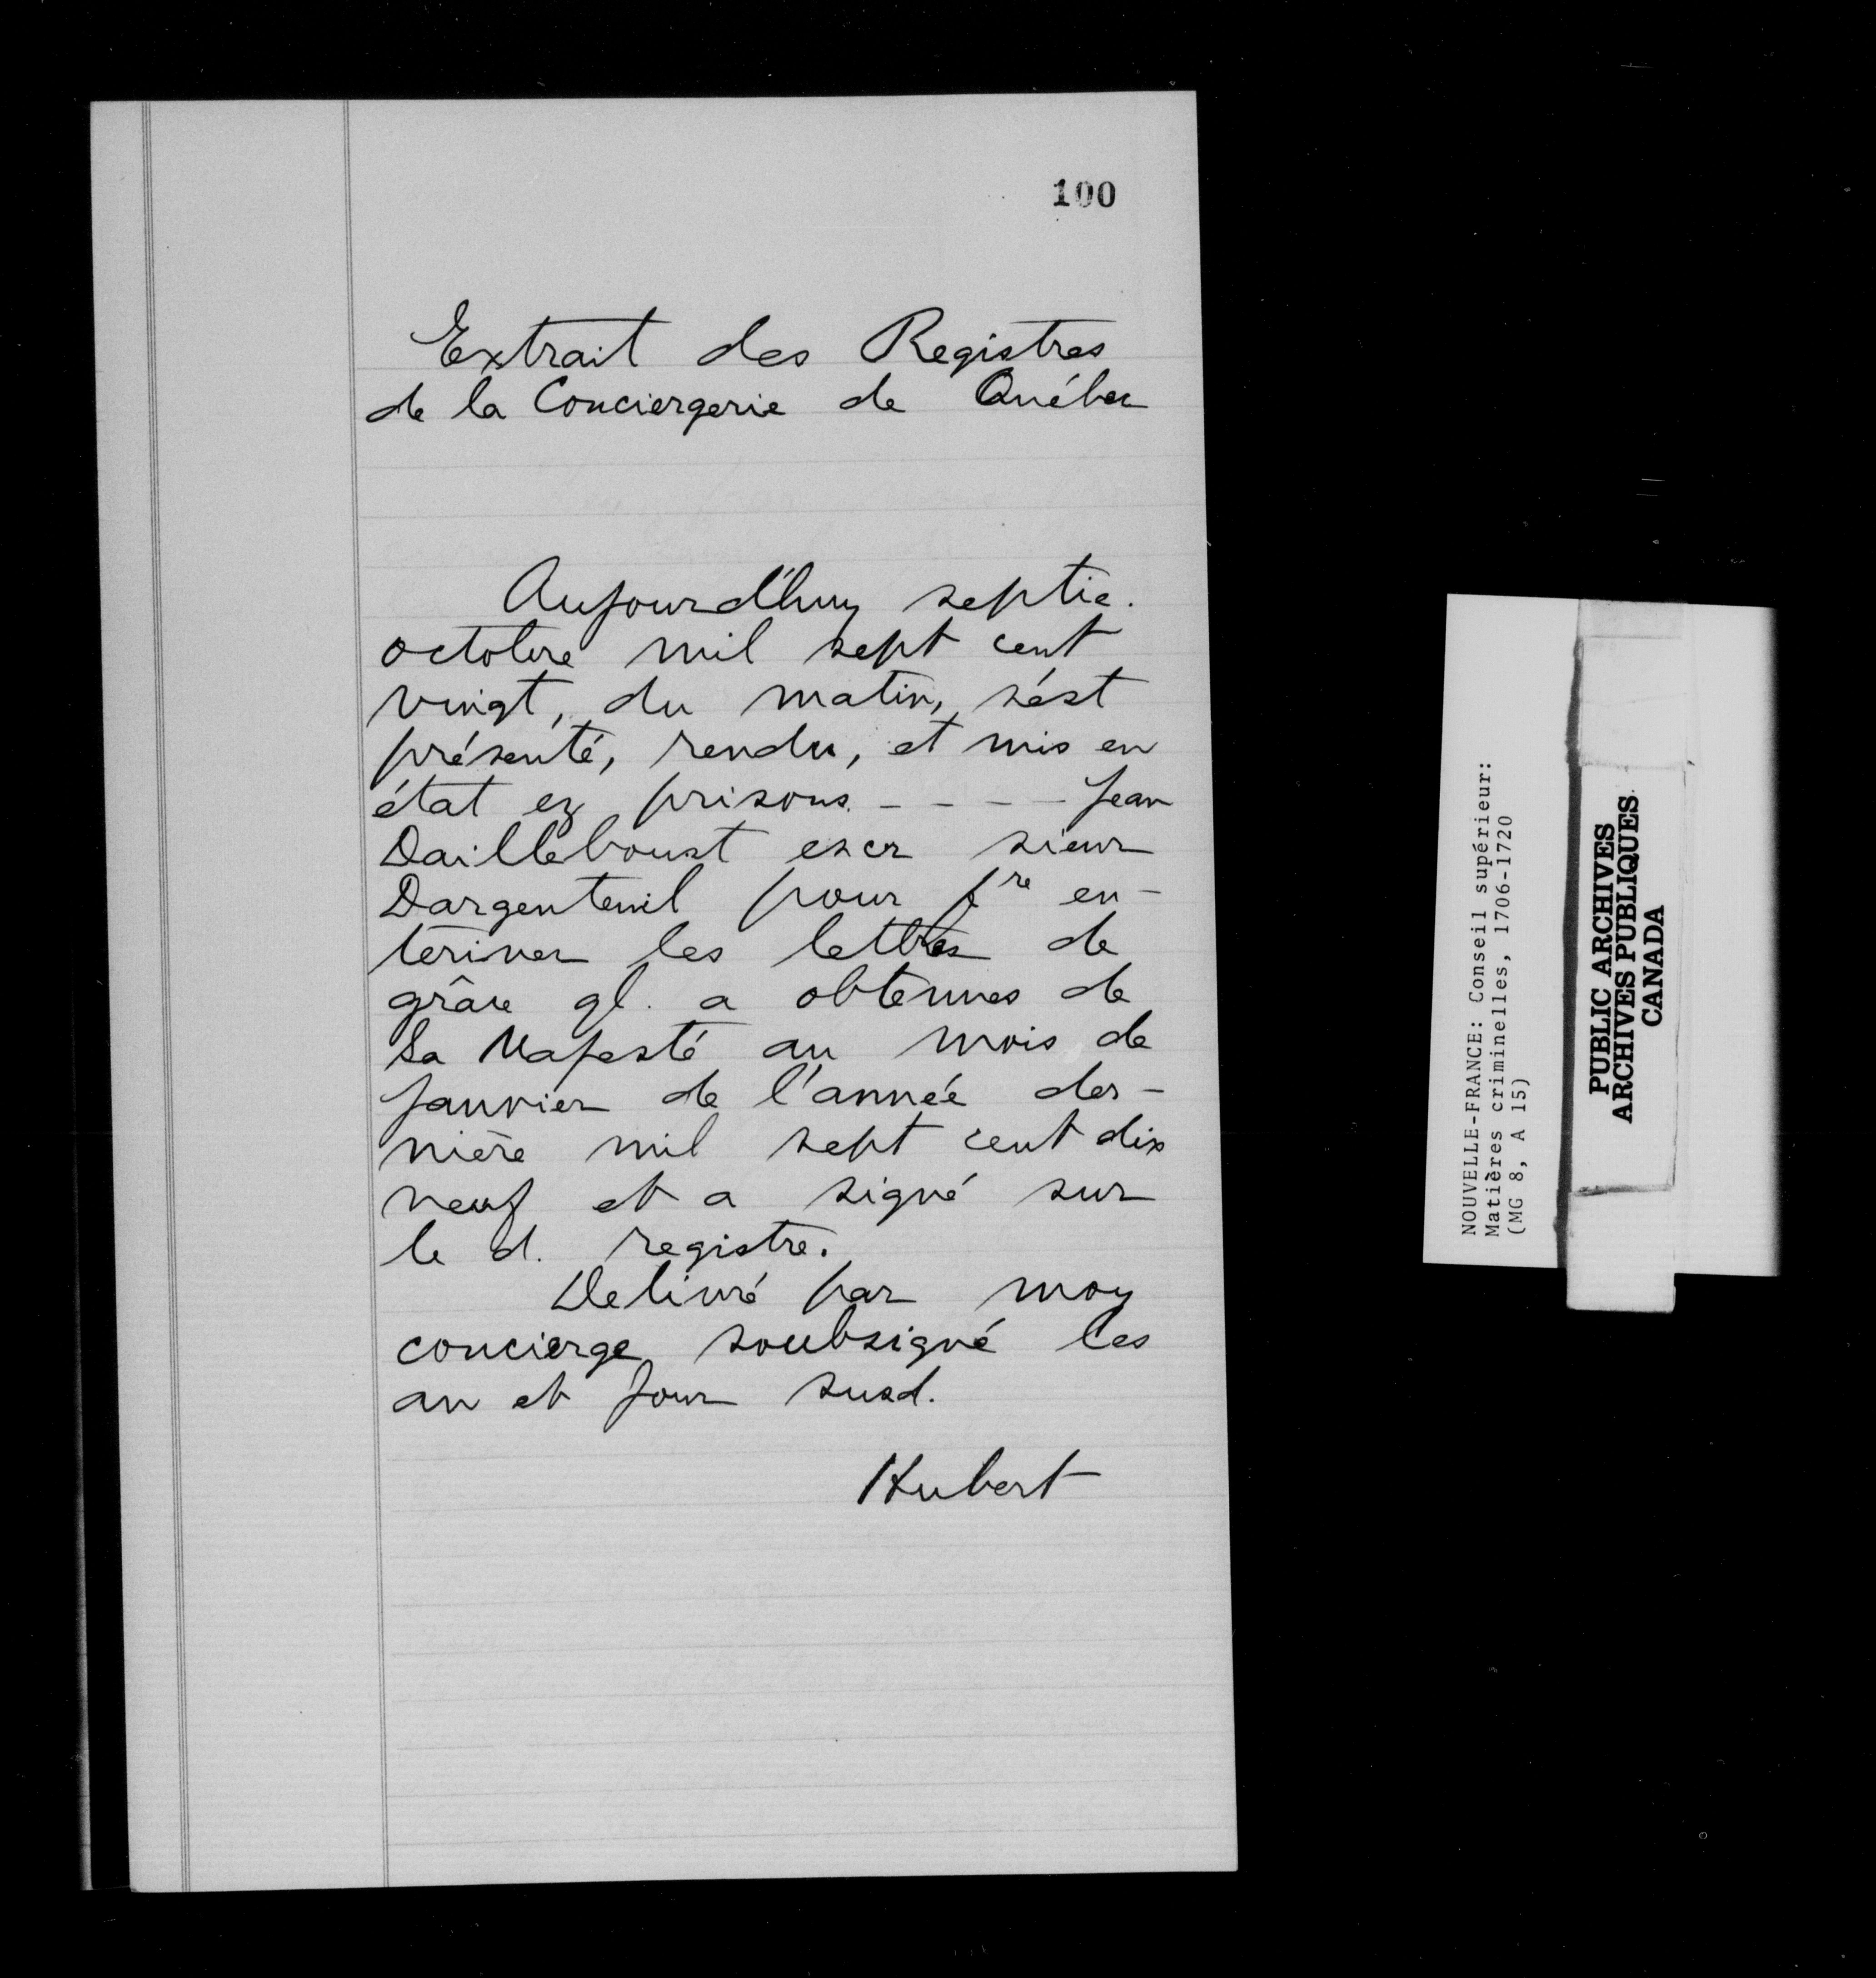 100
Extrait des Registres
de la Conciergerie de Québec
Aujourd'huy septie.
octobre mil sept cent
vingt, du matin, s'est
présenté, rendu, et mis en
état ez prisons - - - - Jean
Dailleboust escr sieur
Dargenteuil pour fre en-
tériner les lettres de
grâce ql. a obtenues de
Sa Majesté au mois de
janvier de l'année der-
nière mil sept cent dix
neuf et a signé sur
le d. registre.
Delivré par moy
concierge soubsigné les
an et jour susd.
Hubert
NOUVELLE-FRANCE: Conseil supérieur:
Matières criminelles, 1706-1720
(MG 8, A 15)
PUBLIC ARCHIVES
ARCHIVES PUBLIQUES
CANADA